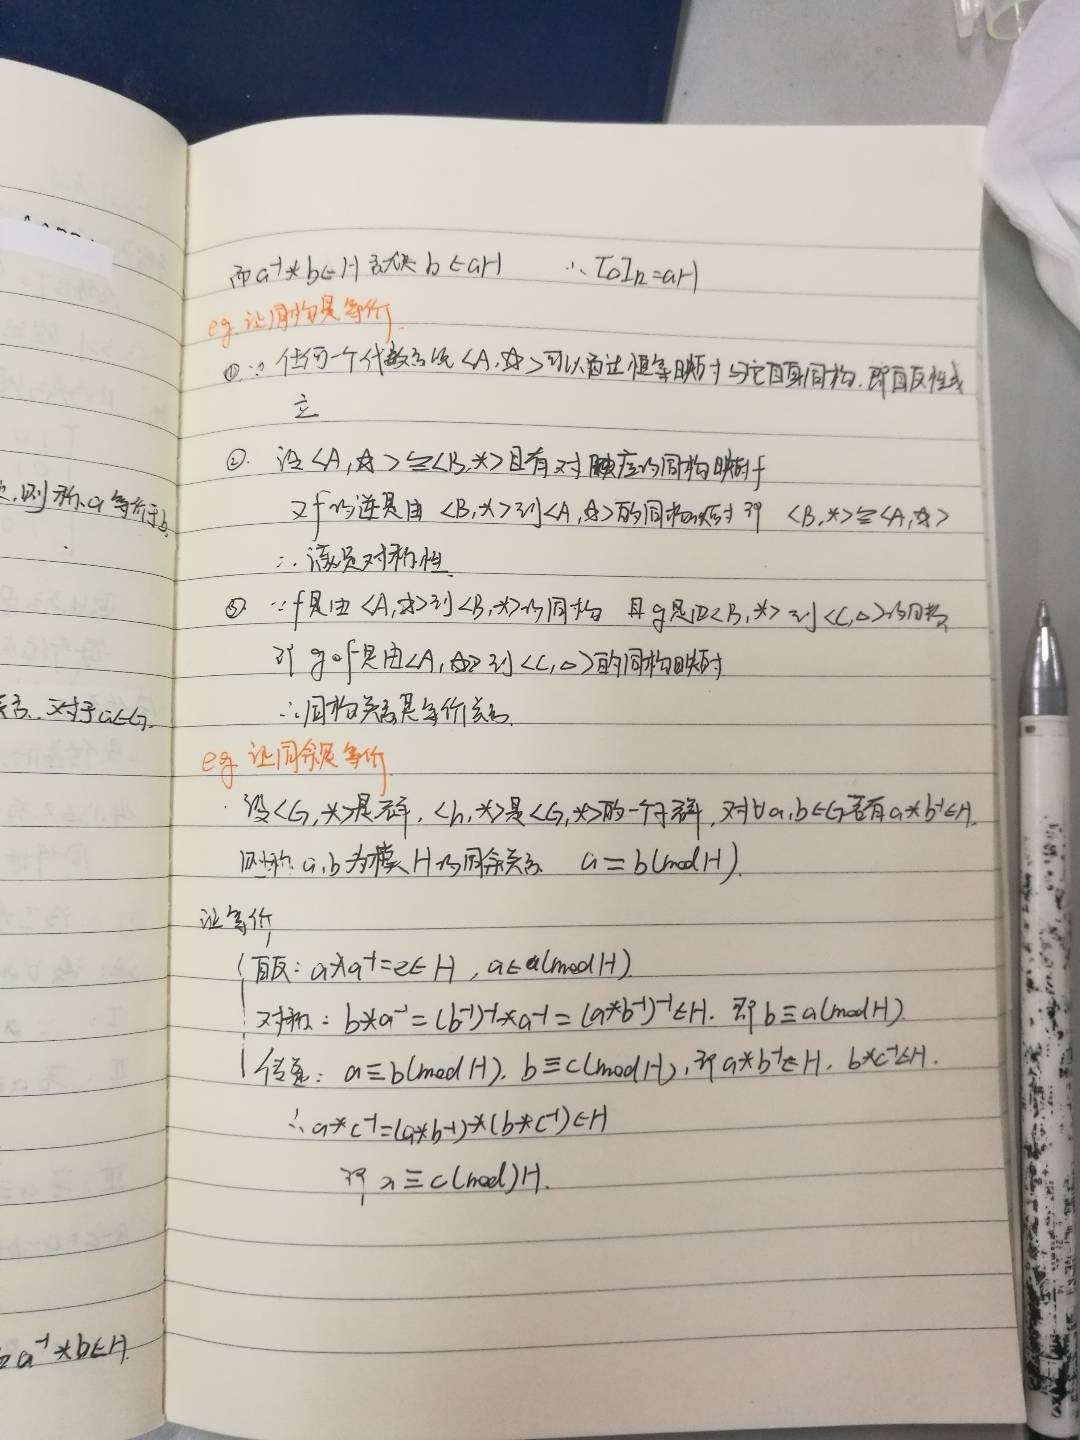 而a⁻¹*b∈H 就是 b∈aH ∴[a]R=aH
eg. 证同构是等价.
①∵ 任何一个代数系统<A,☆>可以通过恒等映射与它自身同构.即自反性成
立
②. 设<A,☆>≅<B,*>且有对应的同构映射f
又f的逆是由<B,*>到<A,☆>的同构映射 即 <B,*>≅<A,☆>
∴满足对称性.
③ ∵f是由<A,☆>到<B,*>的同构 且g是由<B,*>到<C,△>的同构
即g∘f是由<A,☆>到<C,△>的同构映射
∴同构关系是等价关系.
eg. 证同余是等价.
设<G,*>是群,<h,*>是<G,*>的一个子群,对∀a,b∈G若有a*b⁻¹∈H.
则称a,b为模H的同余关系. a≡b(modH).
证等价
自反: a*a⁻¹=e∈H, a∈a(modH).
对称: b*a⁻¹=(b⁻¹)⁻¹*a⁻¹=(a*b⁻¹)⁻¹∈H. 即b≡a(modH).
传递: a≡b(modH). b≡c(modH),即a*b⁻¹∈H. b*c⁻¹∈H.
∴a*c⁻¹=(a*b⁻¹)*(b*c⁻¹)∈H
即a≡c(mod)H.
,则称a等价于b.
关系.对于a∈G.
a⁻¹*b∈H.